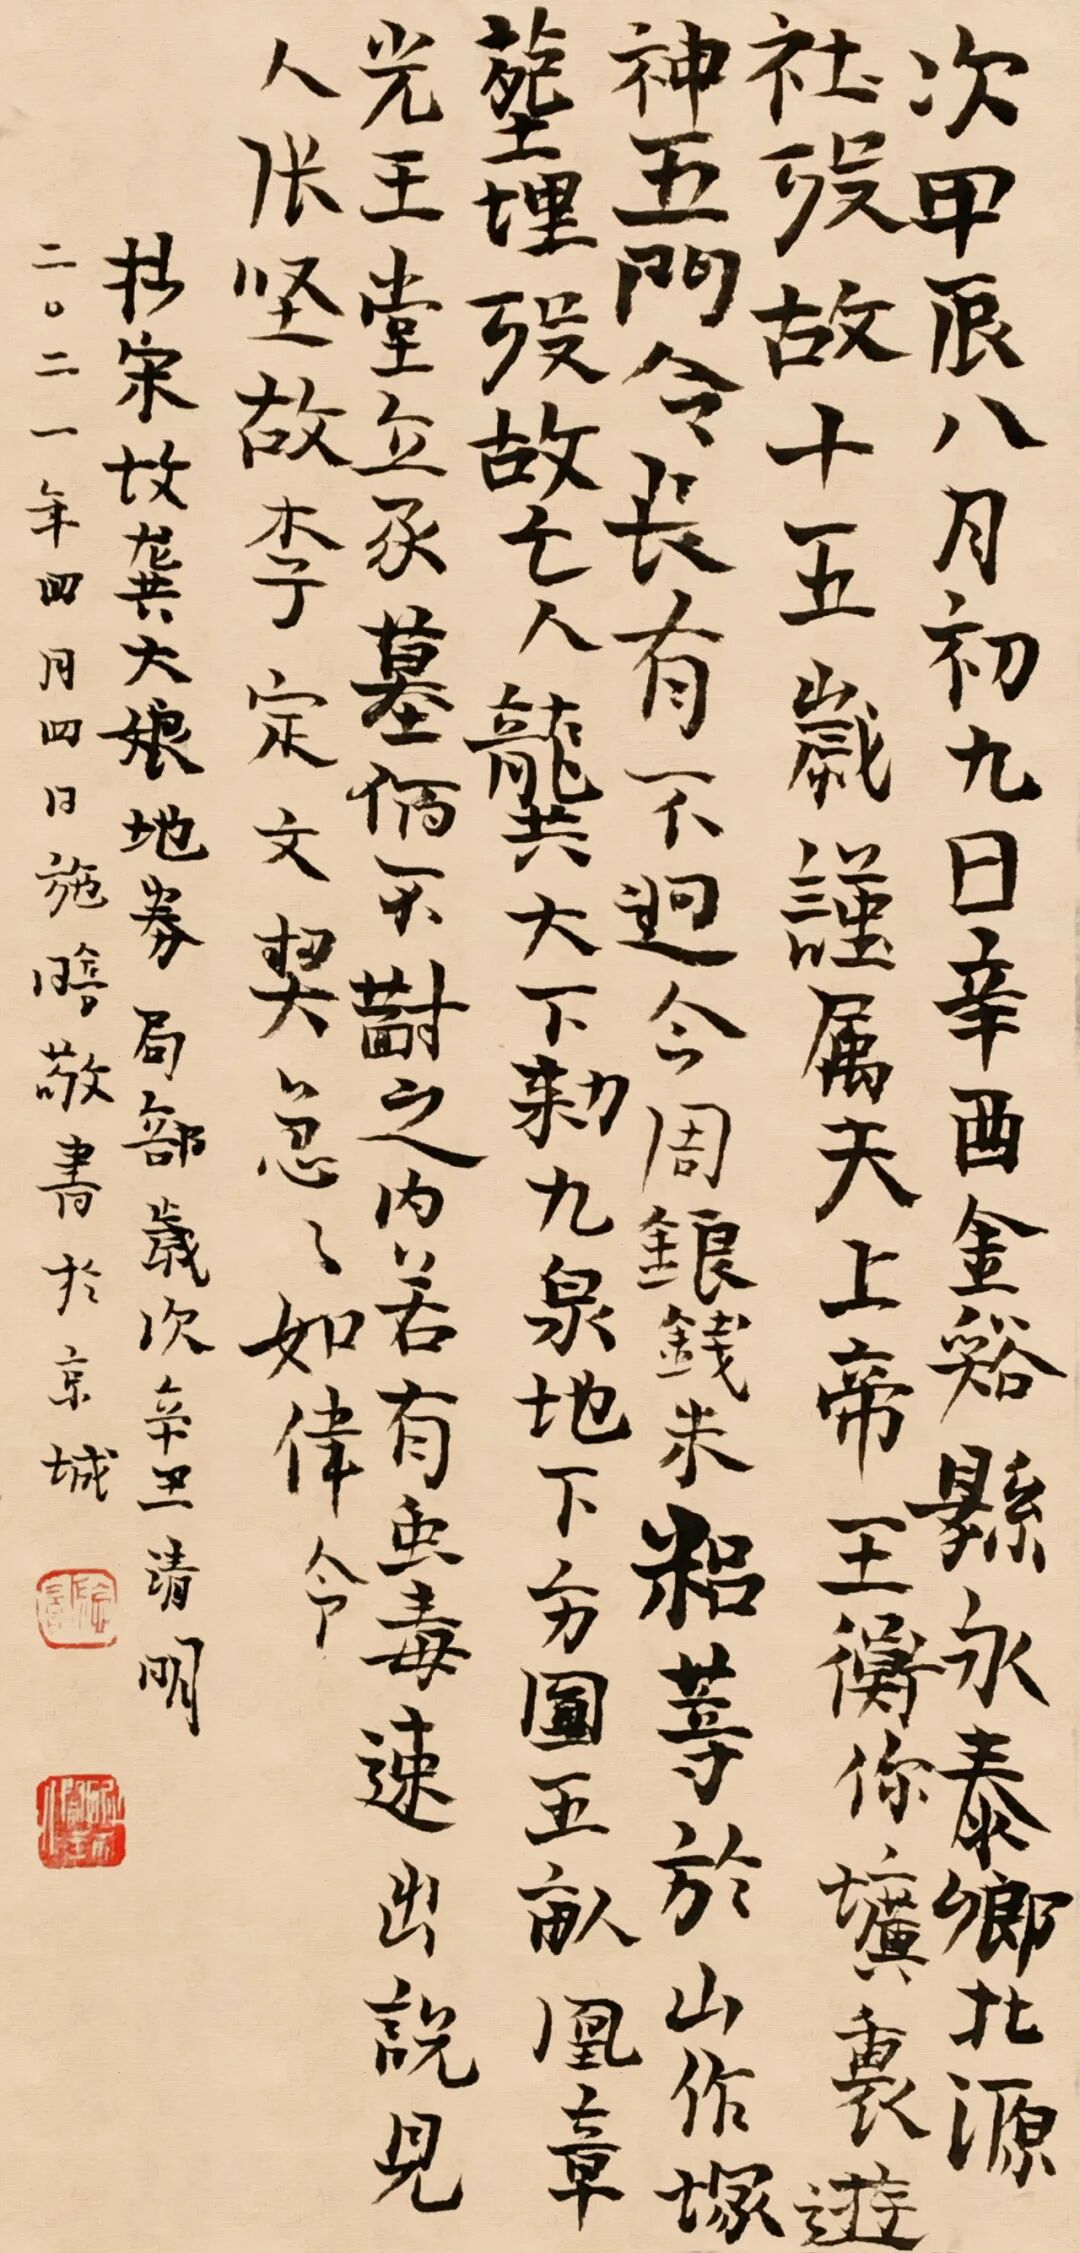 次甲辰八月初九日辛酉金谿縣永泰鄉北源
社歿故十五歲謹属天上帝王衡你壙裏遊
神五門令長有不迴今周銀錢米粮等於山作塚
塟埋歿故亡人龔大下勑九泉地下方圓五畝凰章
光王堂立承墓俻天對之内若有虫毒速出説見
人张坚故李定文契急々如律令
抄宋故龚大娘地券局部歲次辛丑清明
二〇二一年四月四日施晗敬書於京城